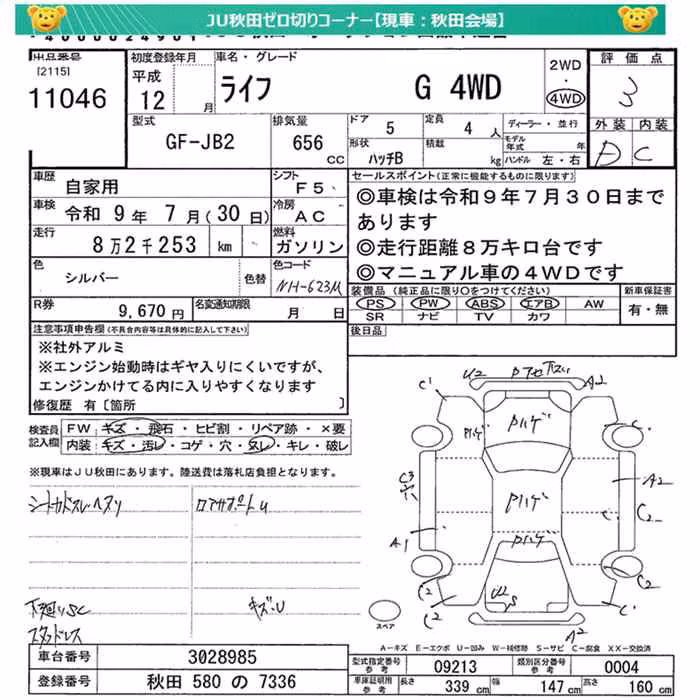 JU秋田ゼロ切りコーナー【現車：秋田会場】
出品番号
[2115]
11046
初度登録年月
平成
12 年 月
車名・グレード
ライフ G 4WD
2WD
・
4WD
評価点
3
外装 内装
D C
型式
GF-JB2
排気量
656 CC
ドア 5
定員 4 人
形状 ハッチB
積載 kg
ディーラー・並行
モデル年式 年
ハンドル 左・右
車歴 自家用
シフト F5
車検 令和 9 年 7 月 ( 30 日)
冷房 AC
走行 8万2千253 km
燃料 ガソリン
色 シルバー 色替
色コード NH-623M
R券 9,670円
名変通知期限 月 日
セールスポイント(正常に機能するものに限ります)
◎車検は令和９年７月３０日まで
あります
◎走行距離８万キロ台です
◎マニュアル車の４WDです
装備品 (純正品に限り○をつけてください)
PS PW ABS エアB AW
SR ナビ TV カワ
新車保証書
有・無
後日品
注意事項申告欄(不具合内容等は具体的に記入して下さい)
※社外アルミ
※エンジン始動時はギヤ入りにくいですが、
エンジンかけてる内に入りやすくなります
修復歴 有〔箇所 〕
検査員記入欄
FW: キズ・飛石・ヒビ割・リペア跡・×要
内装: キズ・汚レ・コゲ・穴・スレ・キレ・破レ
※現車はJU秋田にあります。陸送費は落札店負担となります。
シートカドスレヘタリ
ロアサポートU
下廻りSC
スタッドレス
キズ・U
U2 A2
C' C
Pハゲ
Pハゲ Pハゲ
C3 穴
A2
Pハゲ
C C2
A1
Pハゲ
C2 C2
C2 C'
A2
スペア
A-キズ E-エクボ U-凹み W-補修跡 S-サビ C-腐食 XX-交換済
車台番号 3028985
登録番号 秋田 580 の 7336
型式指定番号 参考 09213
類別区分番号 参考 0004
車庫証明用 参考
長さ 339 cm
幅 147 cm
高さ 160 cm